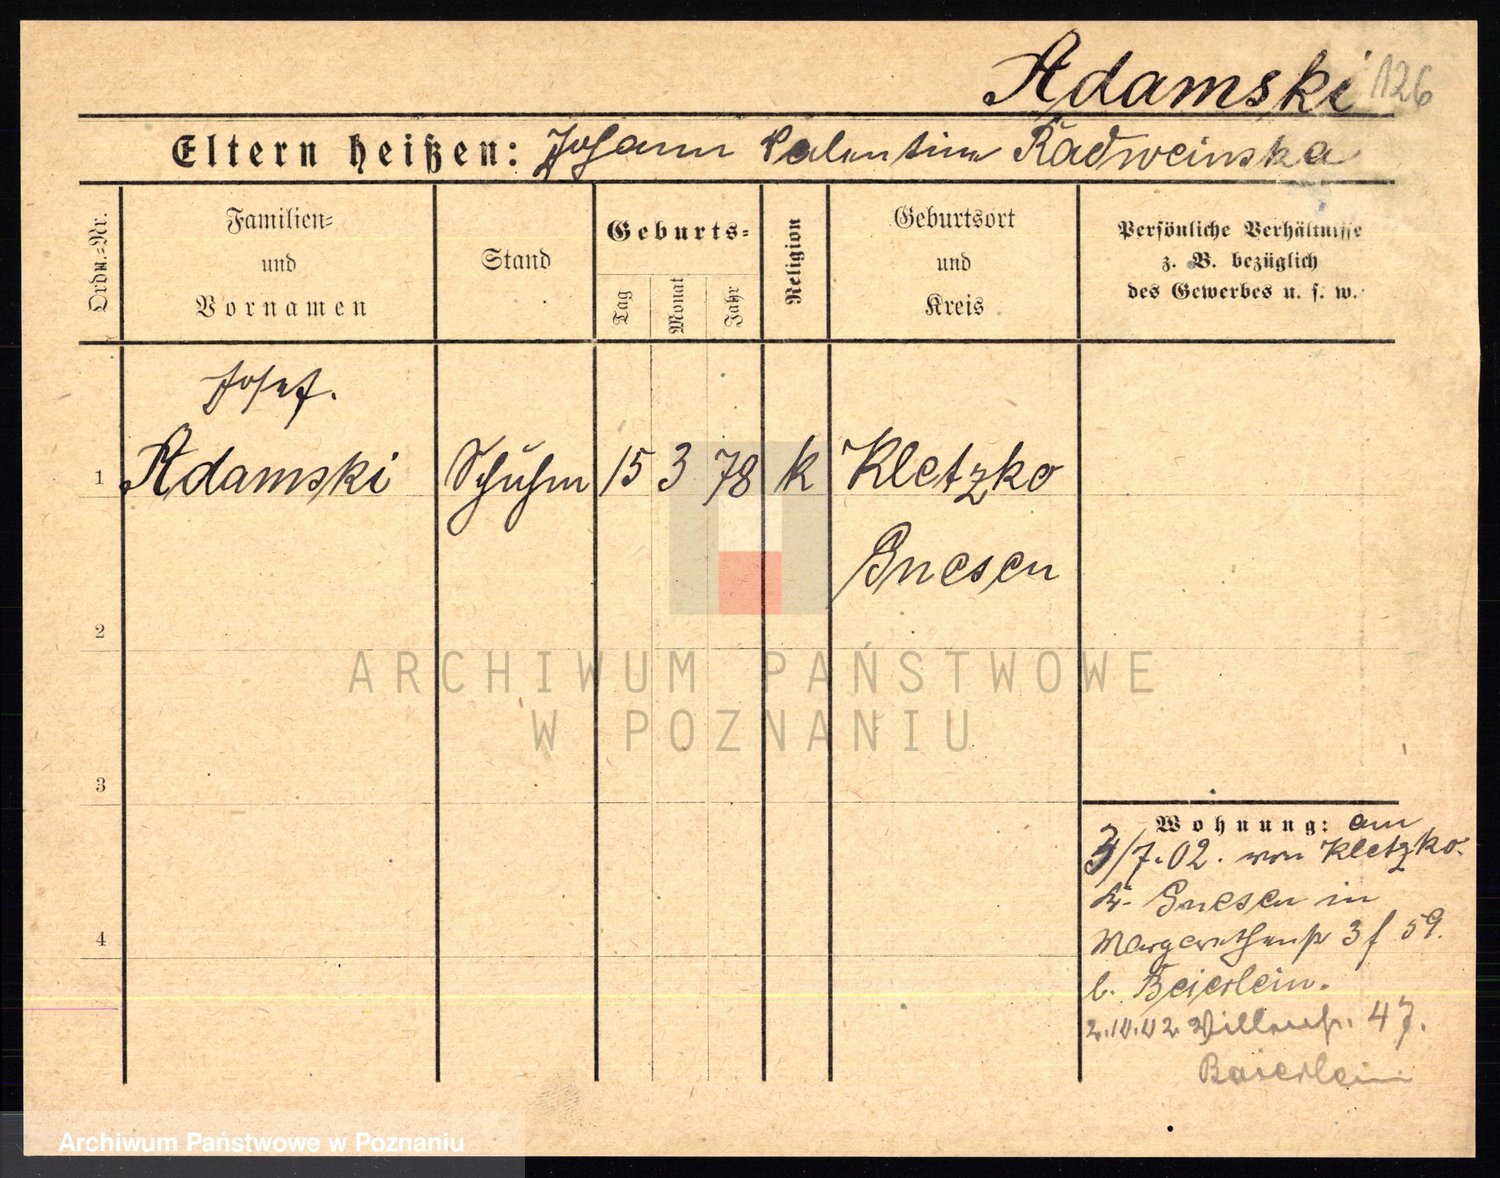 Adamski 126
Eltern heißen: Johann Valentine Radweinska
Ordn.-Nr.
Familien-
und
Vornamen
Stand
Geburts-
Tag
Monat
Jahr
Religion
Geburtsort
und
Kreis
Persönliche Verhältnisse
z. B. bezüglich
des Gewerbes u. s. w.
Josef.
1 Adamski Schuhm 15 3 78 k Kletzko
Gnesen
2
ARCHIWUM PAŃSTWOWE
W POZNANIU
3
Wohnung: am
3/7.02. von Kletzko.
Kr. Gnesen in
Margarethenstr 3 f 59.
b. Beierlein.
2.10.02 47.
Baierlein
4
Archiwum Państwowe w Poznaniu